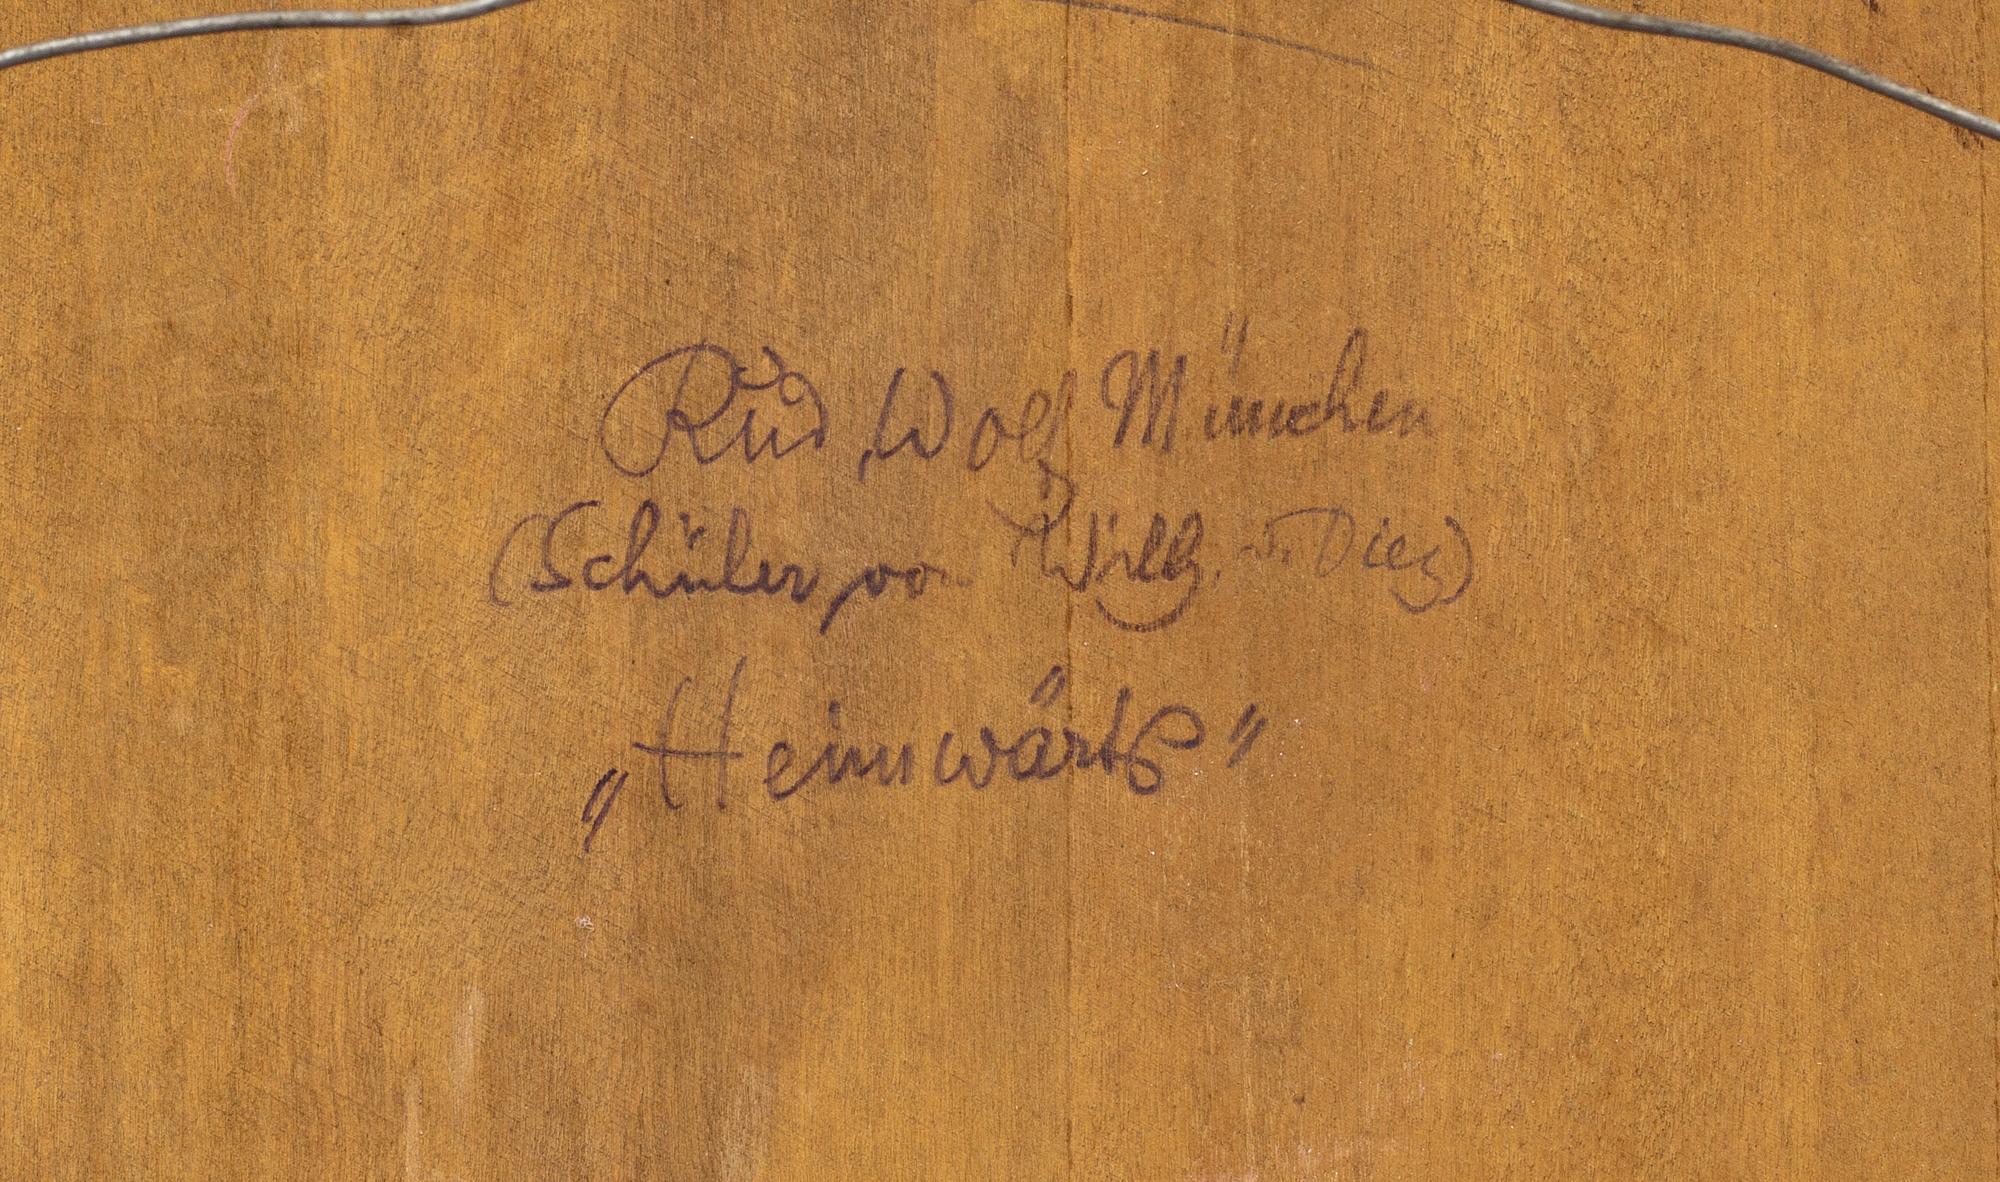 Rud. Wolf München
(Schüler von Wilh. v. Diez)
„Heimwärts"